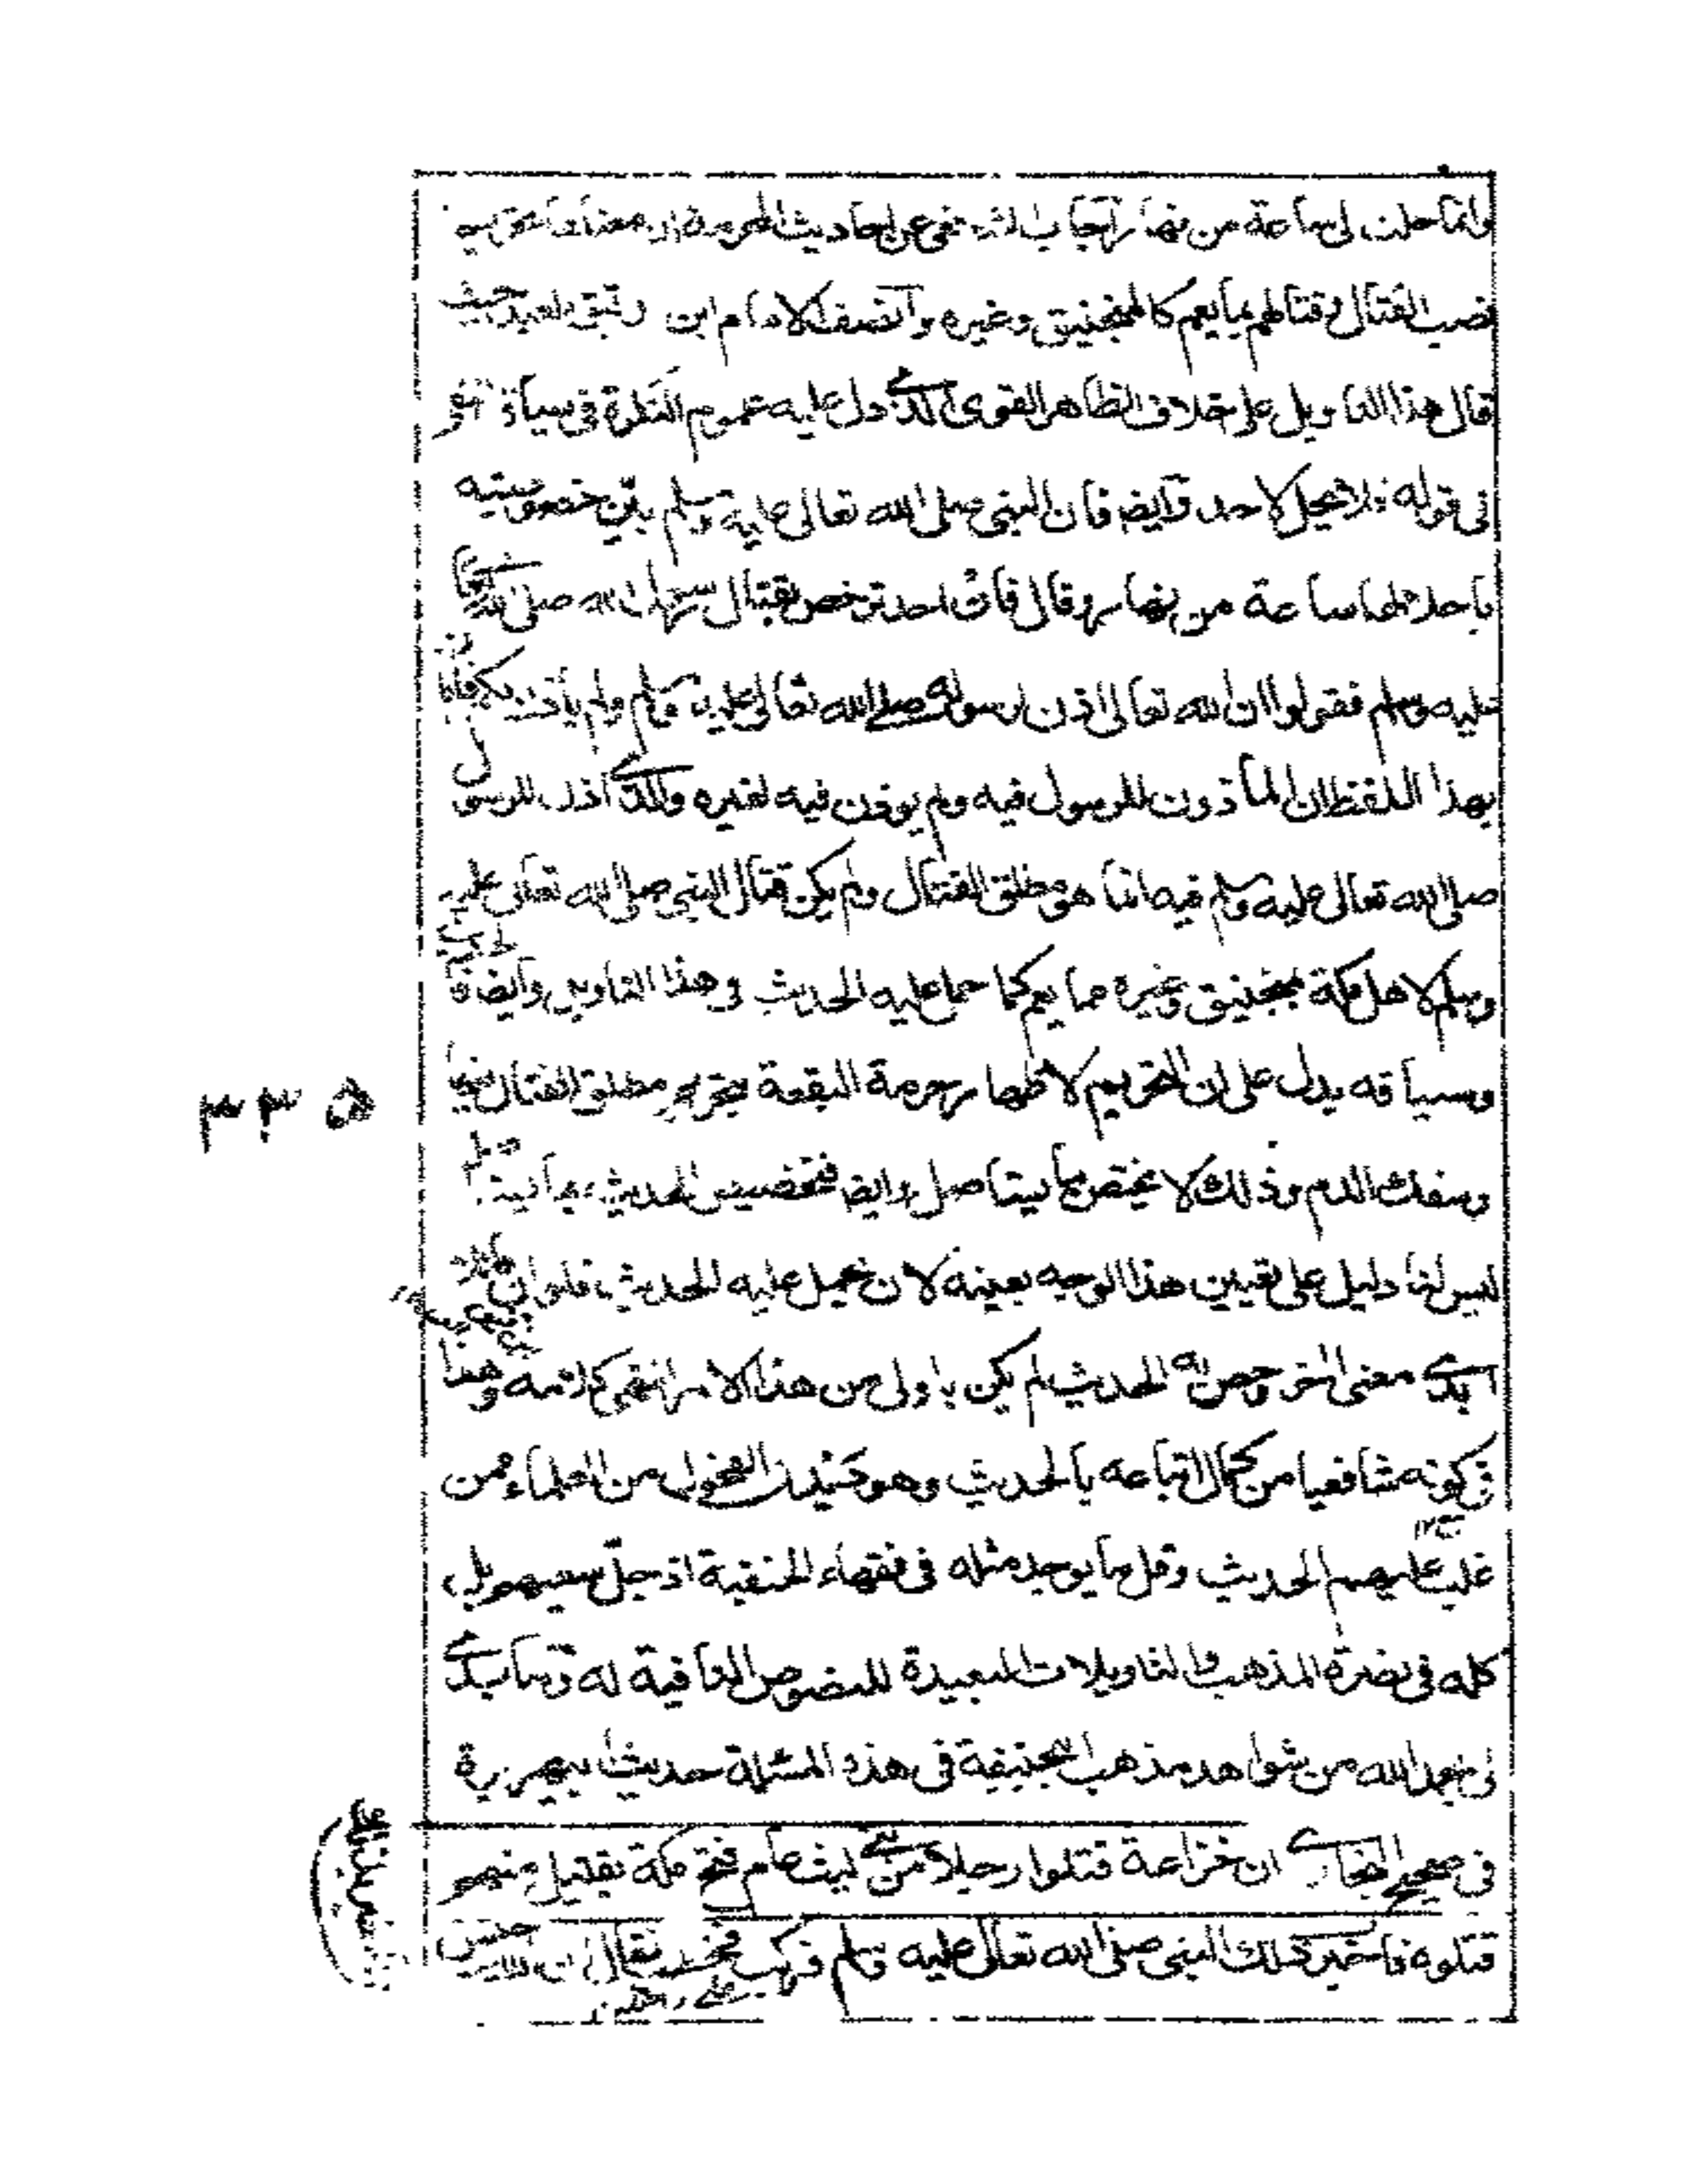 وانما حلت لى ساعة من نهار اجاب الشافعى عن احاديث الحرمة ان معناها تحريم
نصب القتال وقتالهم بما يعم كالمنجنيق وغيره وانصف الامام ابن دقيق العيد حيث
قال هذا التاويل على خلاف الظاهر القوى الذى دل عليه عموم النكرة فى سياق النفى
فى قوله فلا يحل لاحد وايضا فان النبى صلى الله تعالى عليه وسلم بين خصوصيته
باحلالها ساعة من نهار وقال فان احد ترخص بقتال رسول الله صلى الله تعالى
عليه وسلم فقولوا ان الله تعالى اذن لرسوله صلى الله تعالى عليه وسلم ولم يأذن لكم فأبان
بهذا اللفظ ان المأذون للرسول فيه ولم يوذن فيه لغيره والذى اذن للرسول
صلى الله تعالى عليه وسلم فيه انما هو مطلق القتال ولم يكن قتال النبى صلى الله تعالى عليه
وسلم لاهل مكة بمنجنيق وغيره مما يعم كما حمل عليه الحديث فى هذا التاويل وايضا فالحديث
وسياقه يدل على ان التحريم لاظهار حرمة البقعة بتحريم مطلق القتال فيها
وسفك الدم وذلك لا يختص بما يستاصل وايضا فتخصيص الحديث بما يستاصل
ليس لنا دليل على تعيين هذا الوجه بعينه لان يحمل عليه الحديث فلو ان قائلا
ابدى معنى اخر وخص به الحديث لم يكن باولى من هذا الامر انتهى كلامه وهذا
فى كونه شافعيا من كمال اتباعه بالحديث وهو حينئذ من الفحول من العلماء ممن
غلب عليهم الحديث وقل ما يوجد مثله فى فقهاء الحنفية اذ جل سعيهم بل
كله فى نصرة المذهب والتاويلات البعيدة للنصوص المنافية له ومما يبدى
لى بحمد الله من شواهد مذهب ابى حنيفة فى هذه المسئلة حديث ابى هريرة
فى صحيح البخارى ان خزاعة قتلوا رجلا من بنى ليث عام فتح مكة بقتيل منهم
قتلوه فاخبر بذلك النبى صلى الله تعالى عليه وسلم فركب فخطب فقال ان الله حبس
٣٣٥